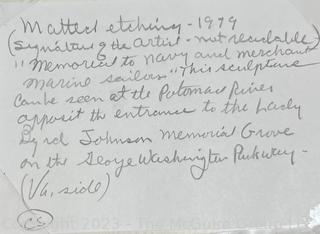 Matted etching - 1979
(Signature of the Artist - not readable -)
"Memorial to Navy and merchant
marine sailors" This sculpture
can be seen at the Potomac River
apposit the entrance to the Lady
Byrd Johnson Memorial Grove
on the Washington Parkway -
(Va, side)
CS
Copyright 2023 - The McGuire